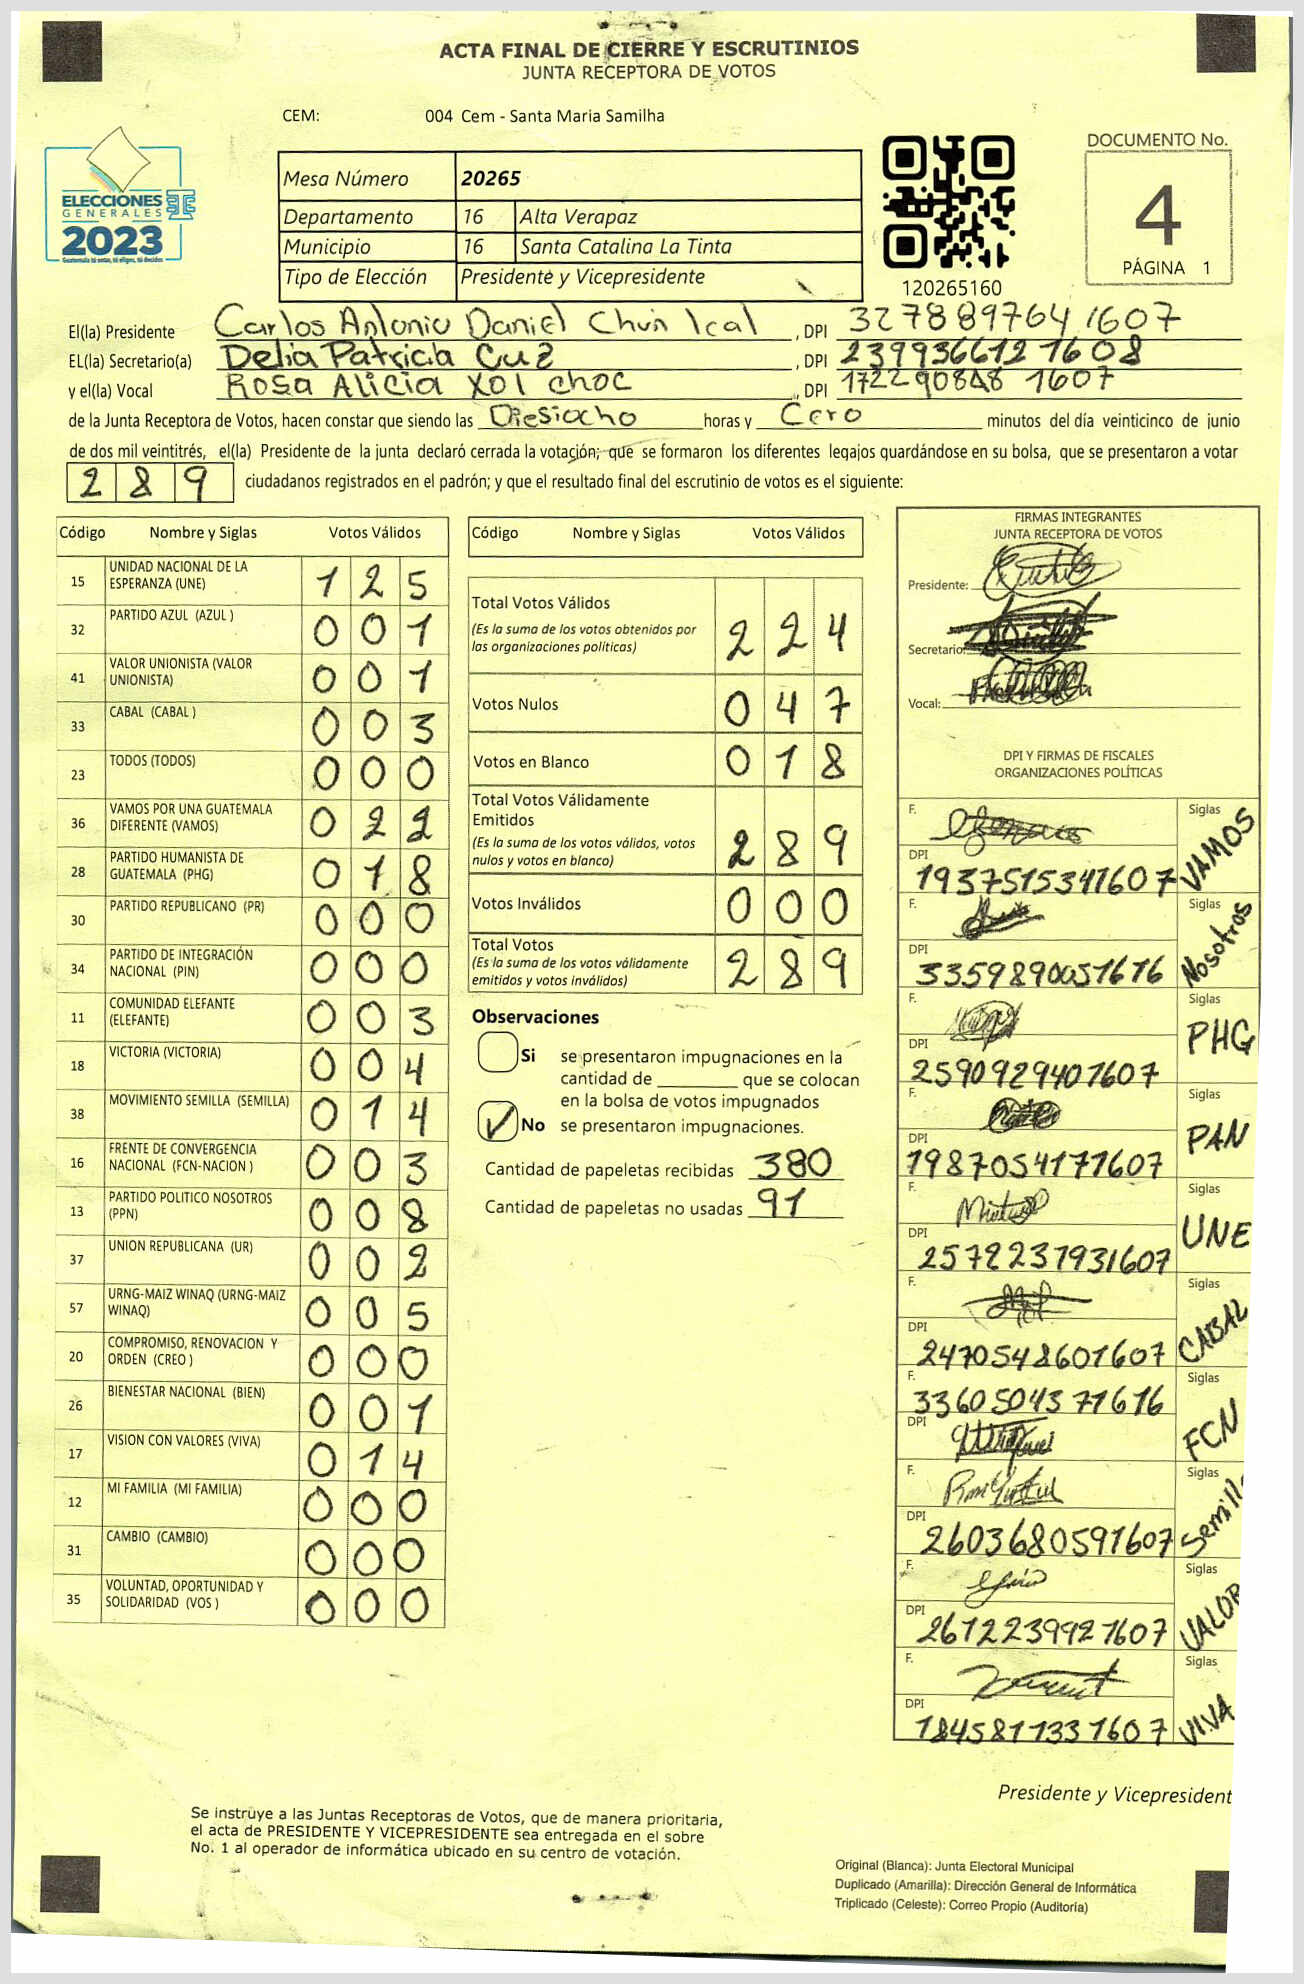 ACTA FINAL DE CIERRE Y ESCRUTINIOS
JUNTA RECEPTORA DE VOTOS
CEM: 004 Cem - Santa Maria Samilha
ELECCIONES
GENERALES
2023
Guatemala tú entras, tú eliges, tú decides
Mesa Número 20265
Departamento 16 Alta Verapaz
Municipio 16 Santa Catalina La Tinta
Tipo de Elección Presidente y Vicepresidente
120265160
DOCUMENTO No.
4
PÁGINA 1
El(la) Presidente Carlos Antonio Daniel Chun Ical, DPI 3278897641607
EL(la) Secretario(a) Delia Patricia Cuz, DPI 2399366121608
y el(la) Vocal Rosa Alicia Xol choc, DPI 172290848 1607
de la Junta Receptora de Votos, hacen constar que siendo las Diesiocho horas y Cero minutos del día veinticinco de junio
de dos mil veintitrés, el(la) Presidente de la junta declaró cerrada la votación; que se formaron los diferentes legajos guardándose en su bolsa, que se presentaron a votar
289 ciudadanos registrados en el padrón; y que el resultado final del escrutinio de votos es el siguiente:
Código Nombre y Siglas Votos Válidos
15 UNIDAD NACIONAL DE LA ESPERANZA (UNE) 125
32 PARTIDO AZUL (AZUL ) 001
41 VALOR UNIONISTA (VALOR UNIONISTA) 001
33 CABAL (CABAL ) 003
23 TODOS (TODOS) 000
36 VAMOS POR UNA GUATEMALA DIFERENTE (VAMOS) 022
28 PARTIDO HUMANISTA DE GUATEMALA (PHG) 018
30 PARTIDO REPUBLICANO (PR) 000
34 PARTIDO DE INTEGRACIÓN NACIONAL (PIN) 000
11 COMUNIDAD ELEFANTE (ELEFANTE) 003
18 VICTORIA (VICTORIA) 004
38 MOVIMIENTO SEMILLA (SEMILLA) 014
16 FRENTE DE CONVERGENCIA NACIONAL (FCN-NACION ) 003
13 PARTIDO POLITICO NOSOTROS (PPN) 008
37 UNION REPUBLICANA (UR) 002
57 URNG-MAIZ WINAQ (URNG-MAIZ WINAQ) 005
20 COMPROMISO, RENOVACION Y ORDEN (CREO ) 000
26 BIENESTAR NACIONAL (BIEN) 001
17 VISION CON VALORES (VIVA) 014
12 MI FAMILIA (MI FAMILIA) 000
31 CAMBIO (CAMBIO) 000
35 VOLUNTAD, OPORTUNIDAD Y SOLIDARIDAD (VOS ) 000
Código Nombre y Siglas Votos Válidos
Total Votos Válidos 224
(Es la suma de los votos obtenidos por
las organizaciones políticas)
Votos Nulos 047
Votos en Blanco 018
Total Votos Válidamente
Emitidos
(Es la suma de los votos válidos, votos
nulos y votos en blanco) 289
Votos Inválidos 000
Total Votos
(Es la suma de los votos válidamente
emitidos y votos inválidos) 289
Observaciones
Si se presentaron impugnaciones en la
cantidad de ________ que se colocan
en la bolsa de votos impugnados
No se presentaron impugnaciones.
Cantidad de papeletas recibidas 380
Cantidad de papeletas no usadas 91
FIRMAS INTEGRANTES
JUNTA RECEPTORA DE VOTOS
Presidente:
Secretario:
Vocal:
DPI Y FIRMAS DE FISCALES
ORGANIZACIONES POLÍTICAS
F. Siglas VAMOS
DPI 1937515341607
F. Siglas Nosotros
DPI 3359890051616
F. Siglas PHG
DPI 2590929401607
F. Siglas PAN
DPI 1987054171607
F. Siglas UNE
DPI 2572237931607
F. Siglas CABAL
DPI 2470548601607
F. Siglas FCN
3360504371616
DPI
F. Siglas Semilla
DPI 2603680591607
F. Siglas VALOR
DPI 2612239921607
F. Siglas VIVA
DPI 1845811331607
Presidente y Vicepresident
Se instruye a las Juntas Receptoras de Votos, que de manera prioritaria,
el acta de PRESIDENTE Y VICEPRESIDENTE sea entregada en el sobre
No. 1 al operador de informática ubicado en su centro de votación.
Original (Blanca): Junta Electoral Municipal
Duplicado (Amarilla): Dirección General de Informática
Triplicado (Celeste): Correo Propio (Auditoría)